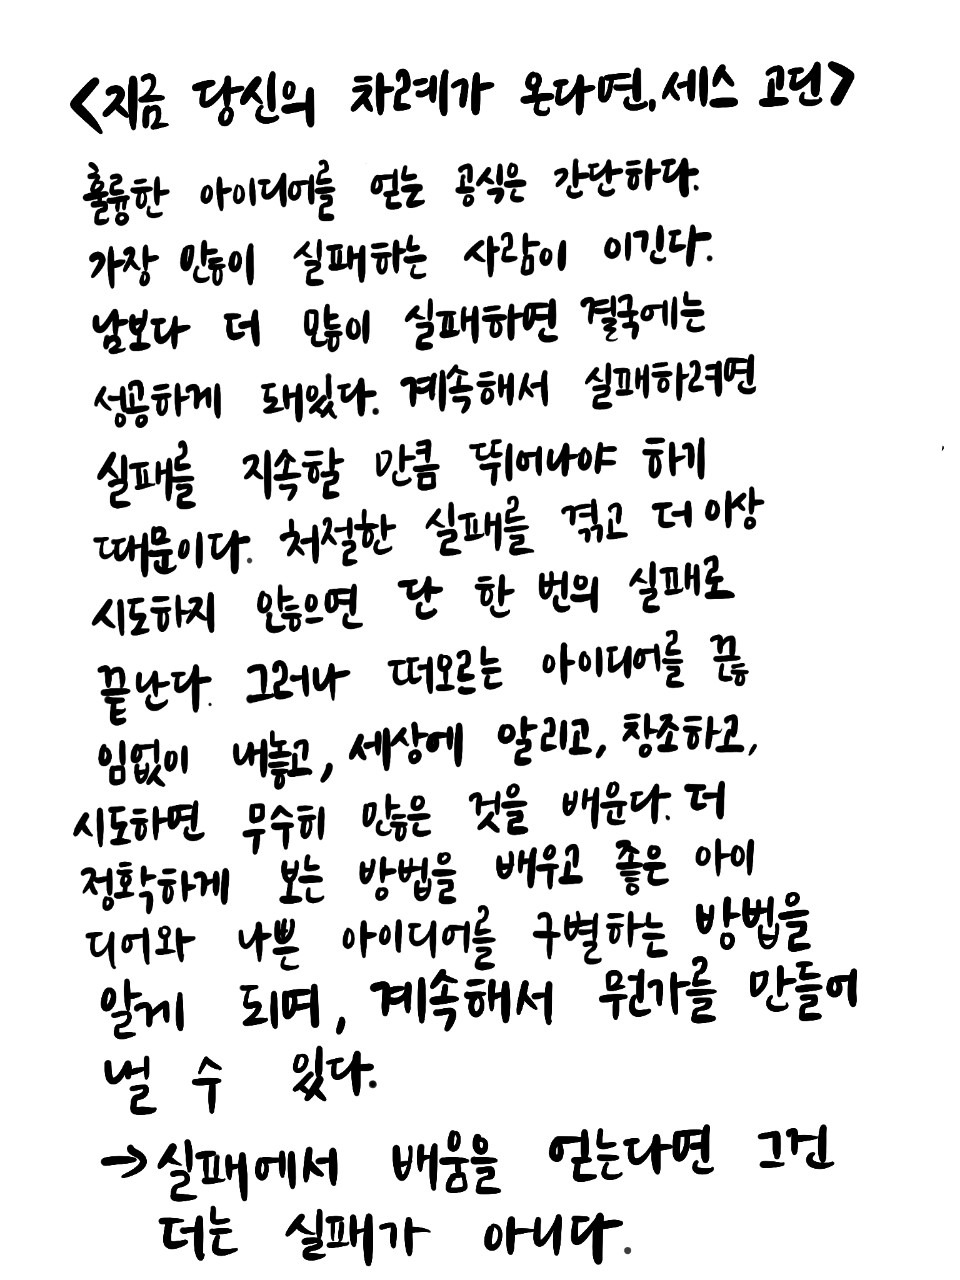 <지금 당신의 차례가 온다면, 세스 고딘>
훌륭한 아이디어를 얻는 공식은 간단하다.
가장 많이 실패하는 사람이 이긴다.
남보다 더 많이 실패하면 결국에는
성공하게 돼있다. 계속해서 실패하려면
실패를 지속할 만큼 뛰어나야 하기
때문이다. 처절한 실패를 겪고 더 이상
시도하지 않으면 단 한 번의 실패로
끝난다. 그러나 떠오르는 아이디어를 끊
임없이 내놓고, 세상에 알리고, 창조하고,
시도하면 무수히 많은 것을 배운다. 더
정확하게 보는 방법을 배우고 좋은 아이
디어와 나쁜 아이디어를 구별하는 방법을
알게 되며, 계속해서 뭔가를 만들어
낼 수 있다.
→ 실패에서 배움을 얻는다면 그건
더는 실패가 아니다.